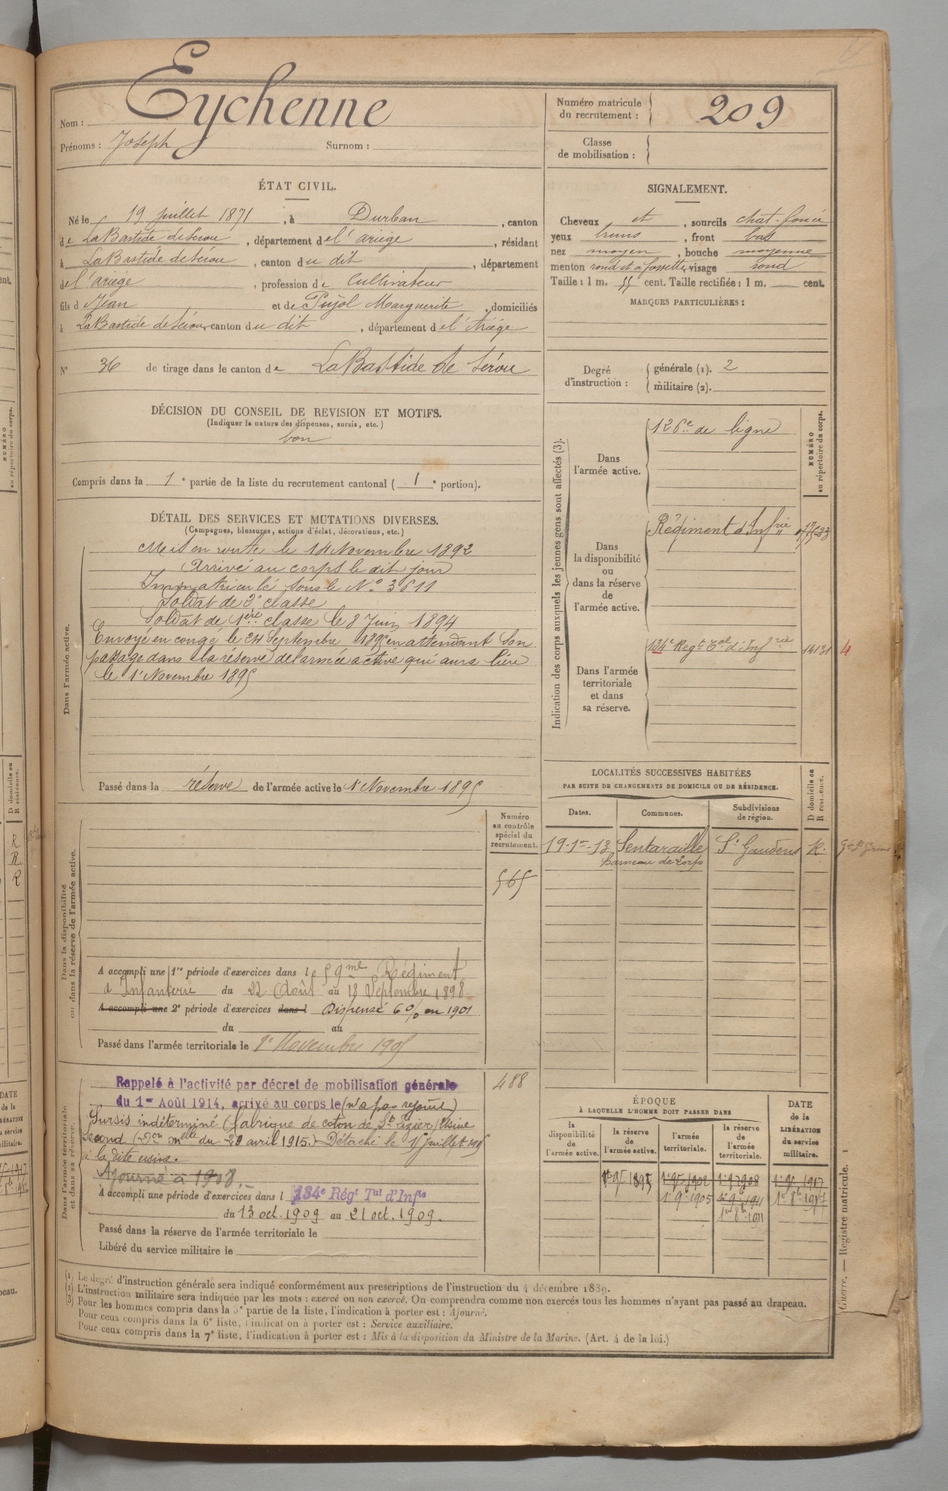 Nom : Eychenne
Prénoms : Joseph Surnom :
Numéro matricule du recrutement : 209
Classe de mobilisation :
ÉTAT CIVIL.
Né le 19 juillet 1871, à Durban, canton
de LaBastide de Serou, département de l'ariège, résidant
à LaBastide de Serou, canton du dit, département
de l'ariège, profession de Cultivateur
fils de Jean et de Pujol Marguerite, domiciliés
à LaBastide de Sérou, canton du dit, département de l'Ariège
N° 36 de tirage dans le canton de LaBastide de Sérou
SIGNALEMENT.
Cheveux et, sourcils chat. foncé
yeux bruns, front bas
nez moyen, bouche moyenne
menton rond et à fossette, visage rond
Taille : 1 m. 55 cent. Taille rectifiée : 1 m. cent.
MARQUES PARTICULIÈRES :
Degré d'instruction : générale (1). 2
militaire (2).
DÉCISION DU CONSEIL DE REVISION ET MOTIFS.
(Indiquer la nature des dispenses, sursis, etc.)
bon
Compris dans la 1e partie de la liste du recrutement cantonal (1e portion).
DÉTAIL DES SERVICES ET MUTATIONS DIVERSES.
(Campagnes, blessures, actions d'éclat, décorations, etc.)
Dans l'armée active.
Mis en route le 14 Novembre 1892
Arrivé au corps le dit jour
Immatriculé sous le N° 3611
Soldat de 2e classe
Soldat de 1ère classe le 8 Juin 1894
Envoyé en congé le 24 Septembre 1895 en attendant son
passage dans la réserve de l'armée active qui aura lieu
le 1r Novembre 1895
Passé dans la réserve de l'armée active le 1r Novembre 1895
Indication des corps auxquels les jeunes gens sont affectés (3).
NUMÉRO au répertoire du corps.
Dans l'armée active.
126e de ligne
Dans la disponibilité ou dans la réserve de l'armée active.
Régiment d'Infrie
Dans l'armée territoriale et dans sa réserve.
134e Régt Tal d'Infrie 14131 4
LOCALITÉS SUCCESSIVES HABITÉES
PAR SUITE DE CHANGEMENTS DE DOMICILE OU DE RÉSIDENCE.
Dates. Communes. Subdivisions de région. D domicile ou R résidence.
19-1r-13 Sentaraille St Gaudens R.
Numéro au contrôle spécial du recrutement.
565
Dans la disponibilité ou dans la réserve de l'armée active.
A accompli une 1re période d'exercices dans le 59me Régiment
d'Infanterie du 22 Août au 18 Septembre 1898
A accompli une 2e période d'exercices dans l Dispensé 6% en 1901
du au
Passé dans l'armée territoriale le 1r Novembre 1905
Dans l'armée territoriale et dans sa réserve.
488
Rappelé à l'activité par décret de mobilisation générale
du 1er Août 1914, arrivé au corps le (n'a pas rejoint)
Sursis indéterminé (fabrique de coton de St Lizier, Usine
du 29 avril 1915.) Détaché le 1r juillet
à la dite usine.
Ajourné à 1908.
A accompli une période d'exercices dans l 134e Régt Tal d'Infie
du 13 oct. 1909 au 21 oct. 1909.
Passé dans la réserve de l'armée territoriale le
Libéré du service militaire le
ÉPOQUE
À LAQUELLE L'HOMME DOIT PASSER DANS
la disponibilité de l'armée active. la réserve de l'armée active. l'armée territoriale. la réserve de l'armée territoriale.
DATE de la LIBÉRATION du service militaire.
1r 9e 1895 1r 9e 1905 1r 8e 1911
(1) Le degré d'instruction générale sera indiqué conformément aux prescriptions de l'instruction du 4 décembre 1889.
(2) L'instruction militaire sera indiquée par les mots : exercé ou non exercé. On comprendra comme non exercés tous les hommes n'ayant pas passé au drapeau.
(3) Pour les hommes compris dans la 5e partie de la liste, l'indication à porter est : Ajourné.
Pour ceux compris dans la 6e liste, l'indication à porter est : Service auxiliaire.
Pour ceux compris dans la 7e liste, l'indication à porter est : Mis à la disposition du Ministre de la Marine. (Art. 4 de la loi.)
Guerre. — Registre matricule. 1